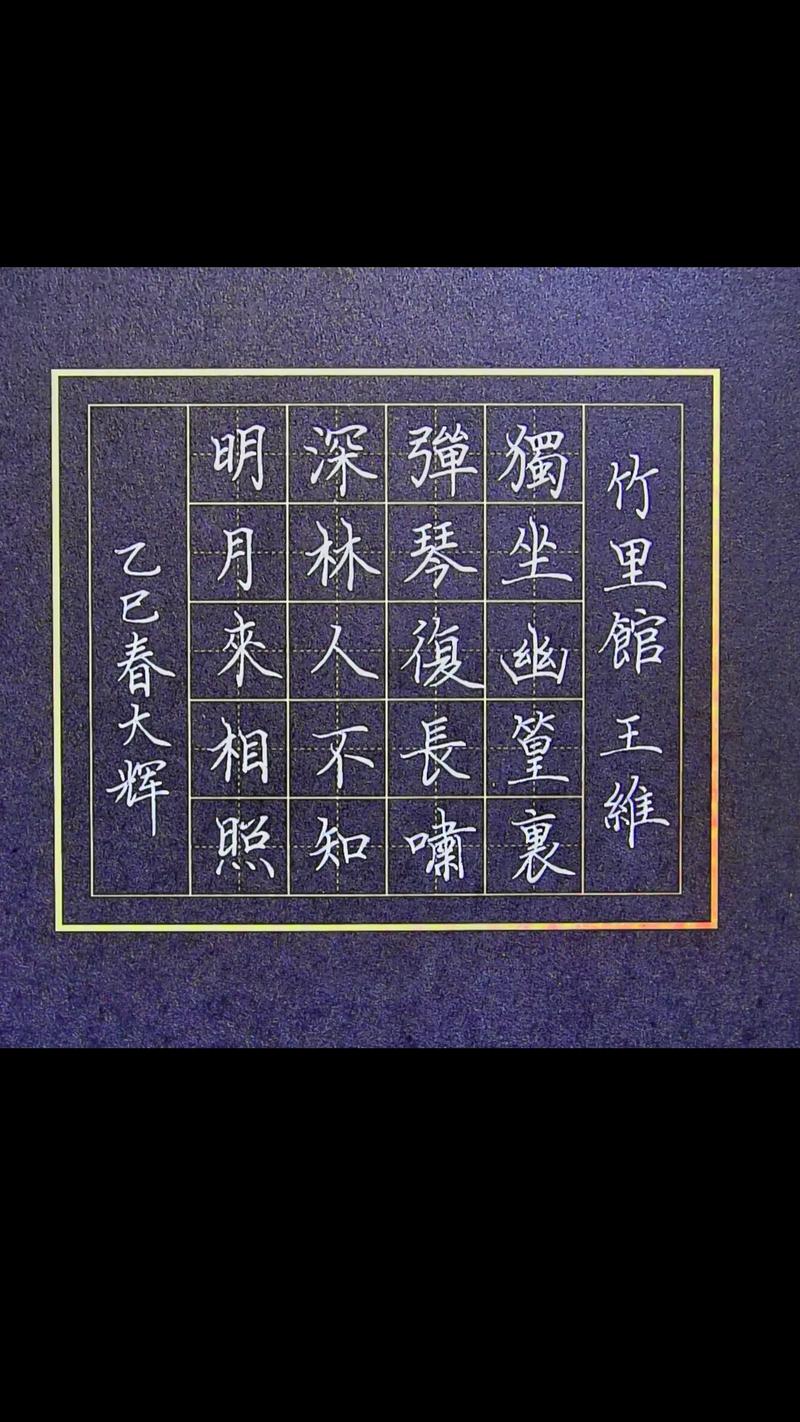 竹里館 王維
獨坐幽篁裏
彈琴復長嘯
深林人不知
明月來相照
乙巳春大辉